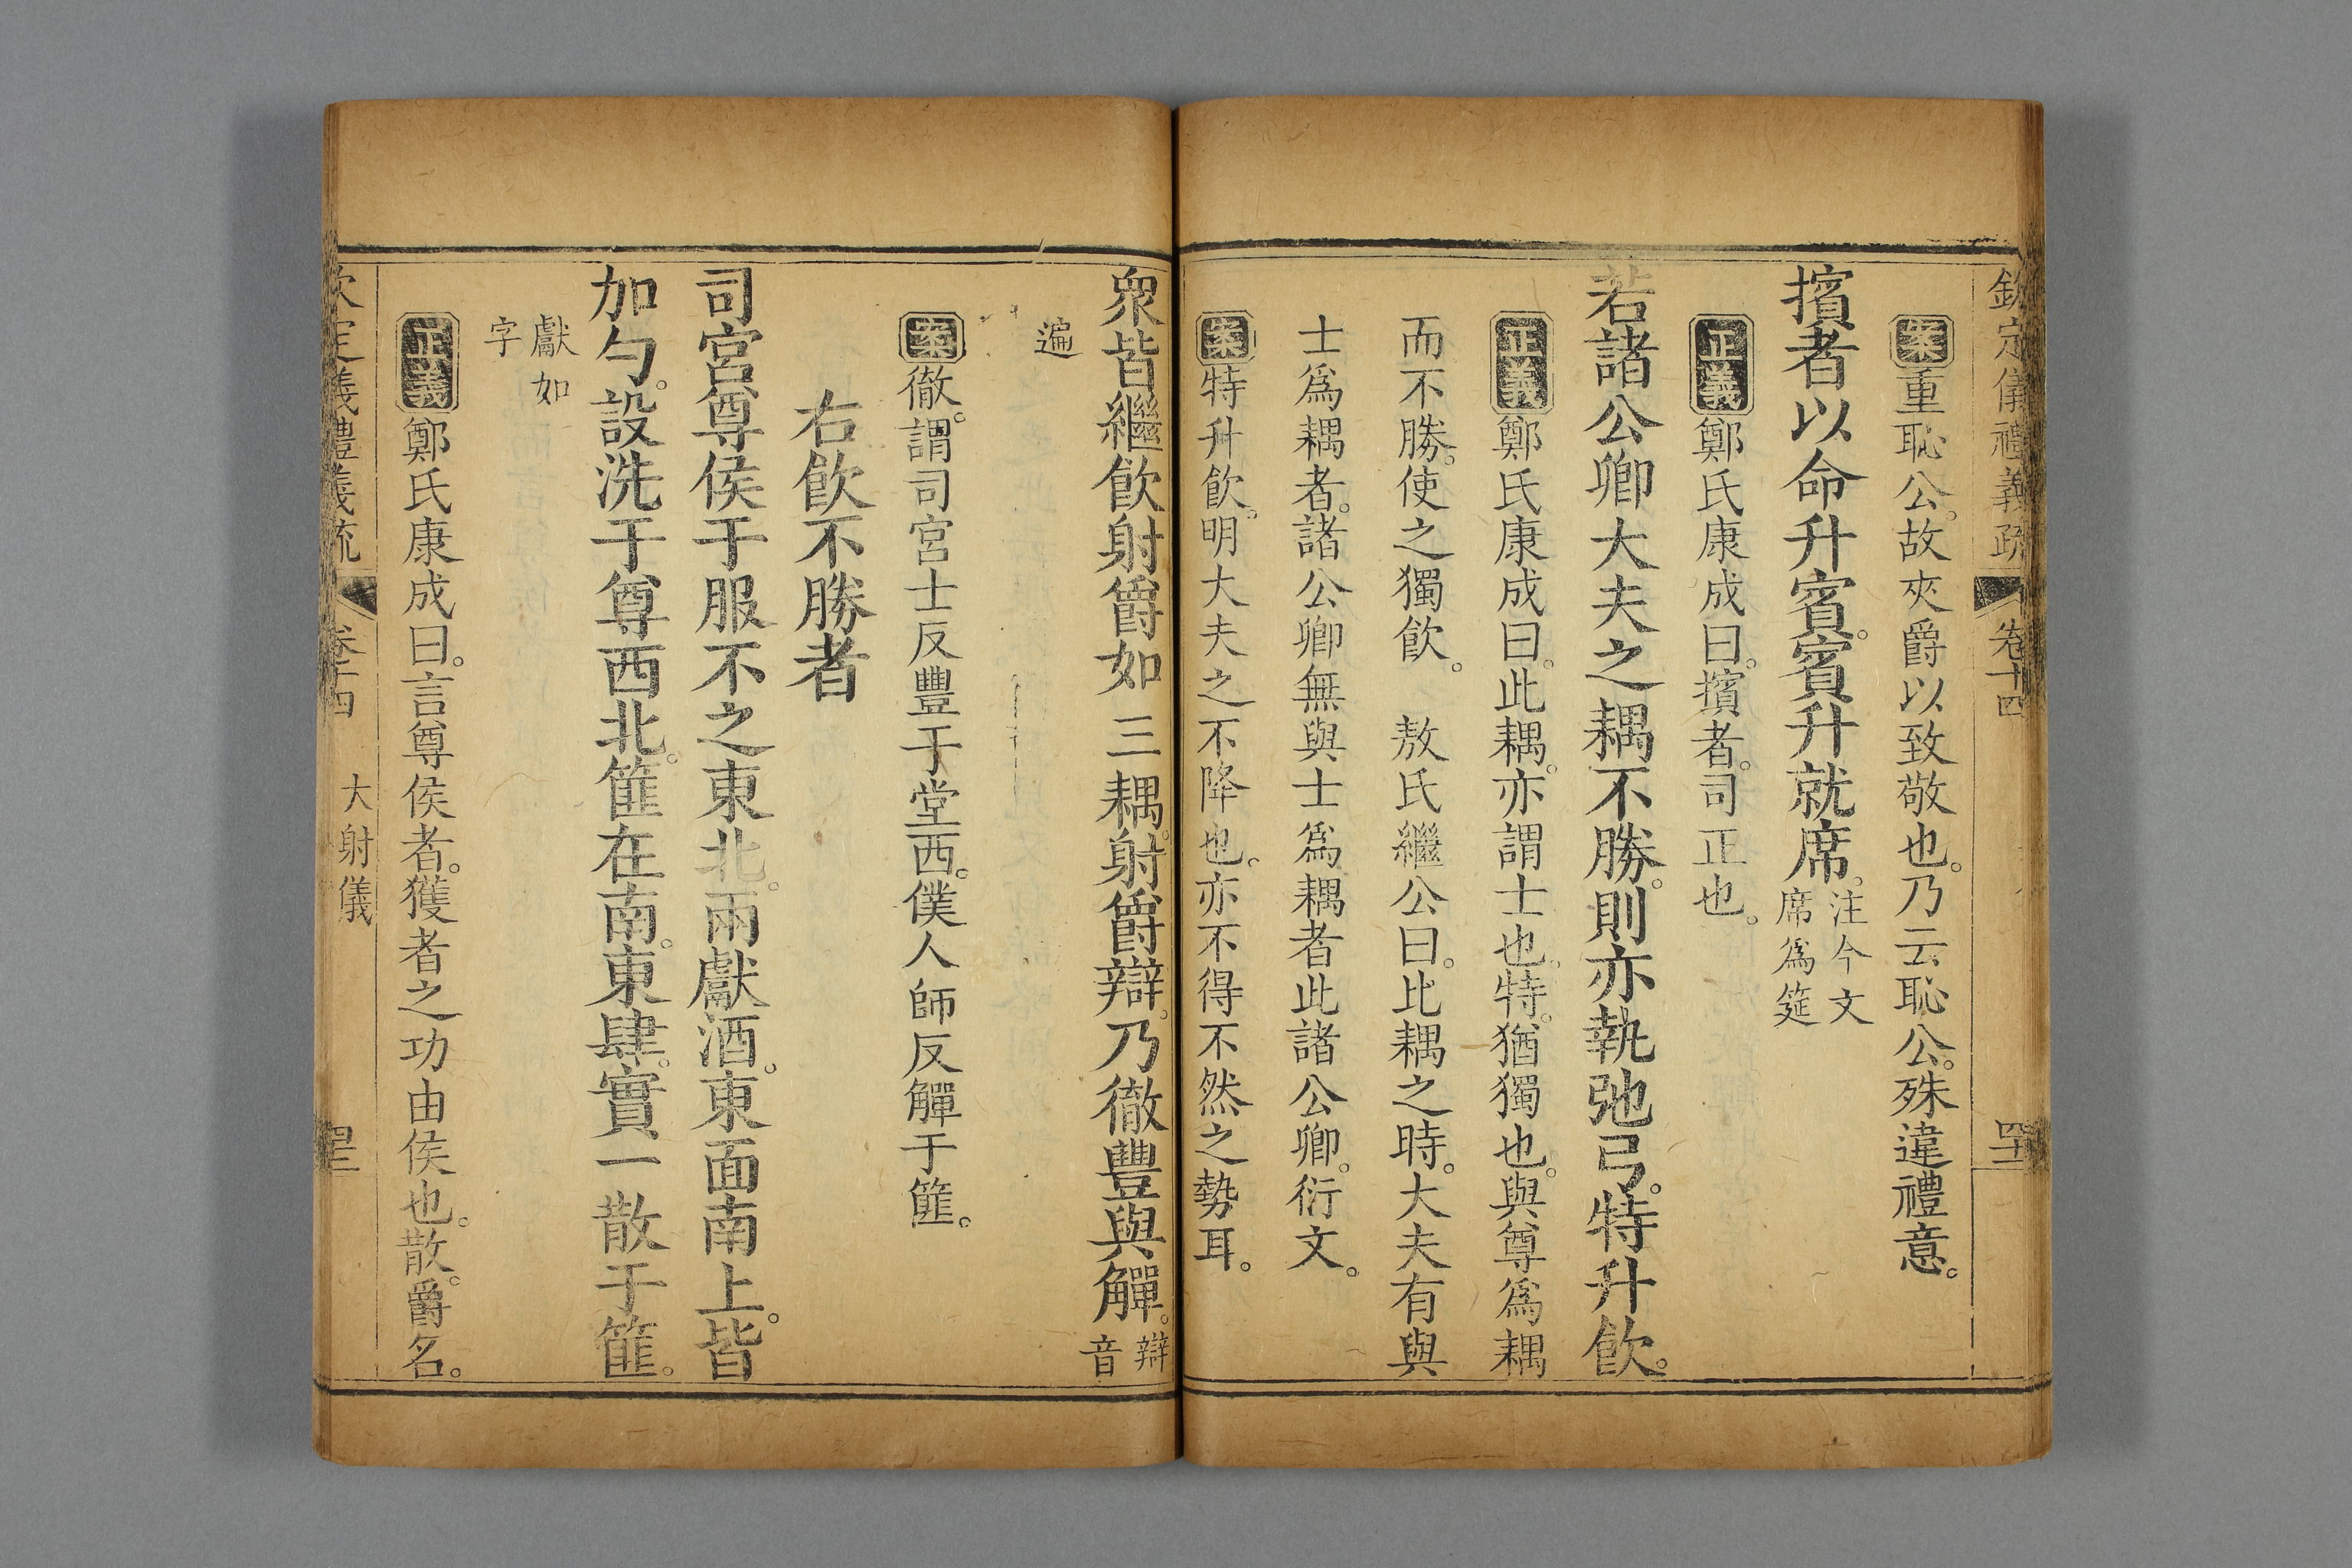 欽定儀禮義疏 卷十四
案重恥公。故夾爵以致敬也。乃云恥公。殊違禮意。
擯者以命升賓。賓升就席。注今文席爲筵
正義鄭氏康成曰。擯者。司正也。
若諸公卿大夫之耦不勝。則亦執弛弓。特升飮。
正義鄭氏康成曰。此耦。亦謂士也。特。猶獨也。與尊爲耦
而不勝。使之獨飮。 敖氏繼公曰。比耦之時。大夫有與
士爲耦者。諸公卿無與士爲耦者此諸公卿。衍文。
案特升飮。明大夫之不降也。亦不得不然之勢耳。
衆皆繼飮射爵如三耦。射爵辯。乃徹豐與觶。辯音
遍
案徹。謂司宮士反豐于堂西。僕人師反觶于篚。
右飮不勝者
司宮尊侯于服不之東北。兩獻酒。東面南上。皆
加勺。設洗于尊西北。篚在南。東肆。實一散于篚。
獻如字
正義鄭氏康成曰。言尊侯者。獲者之功由侯也。散。爵名。
欽定儀禮義疏 卷十四 大射儀